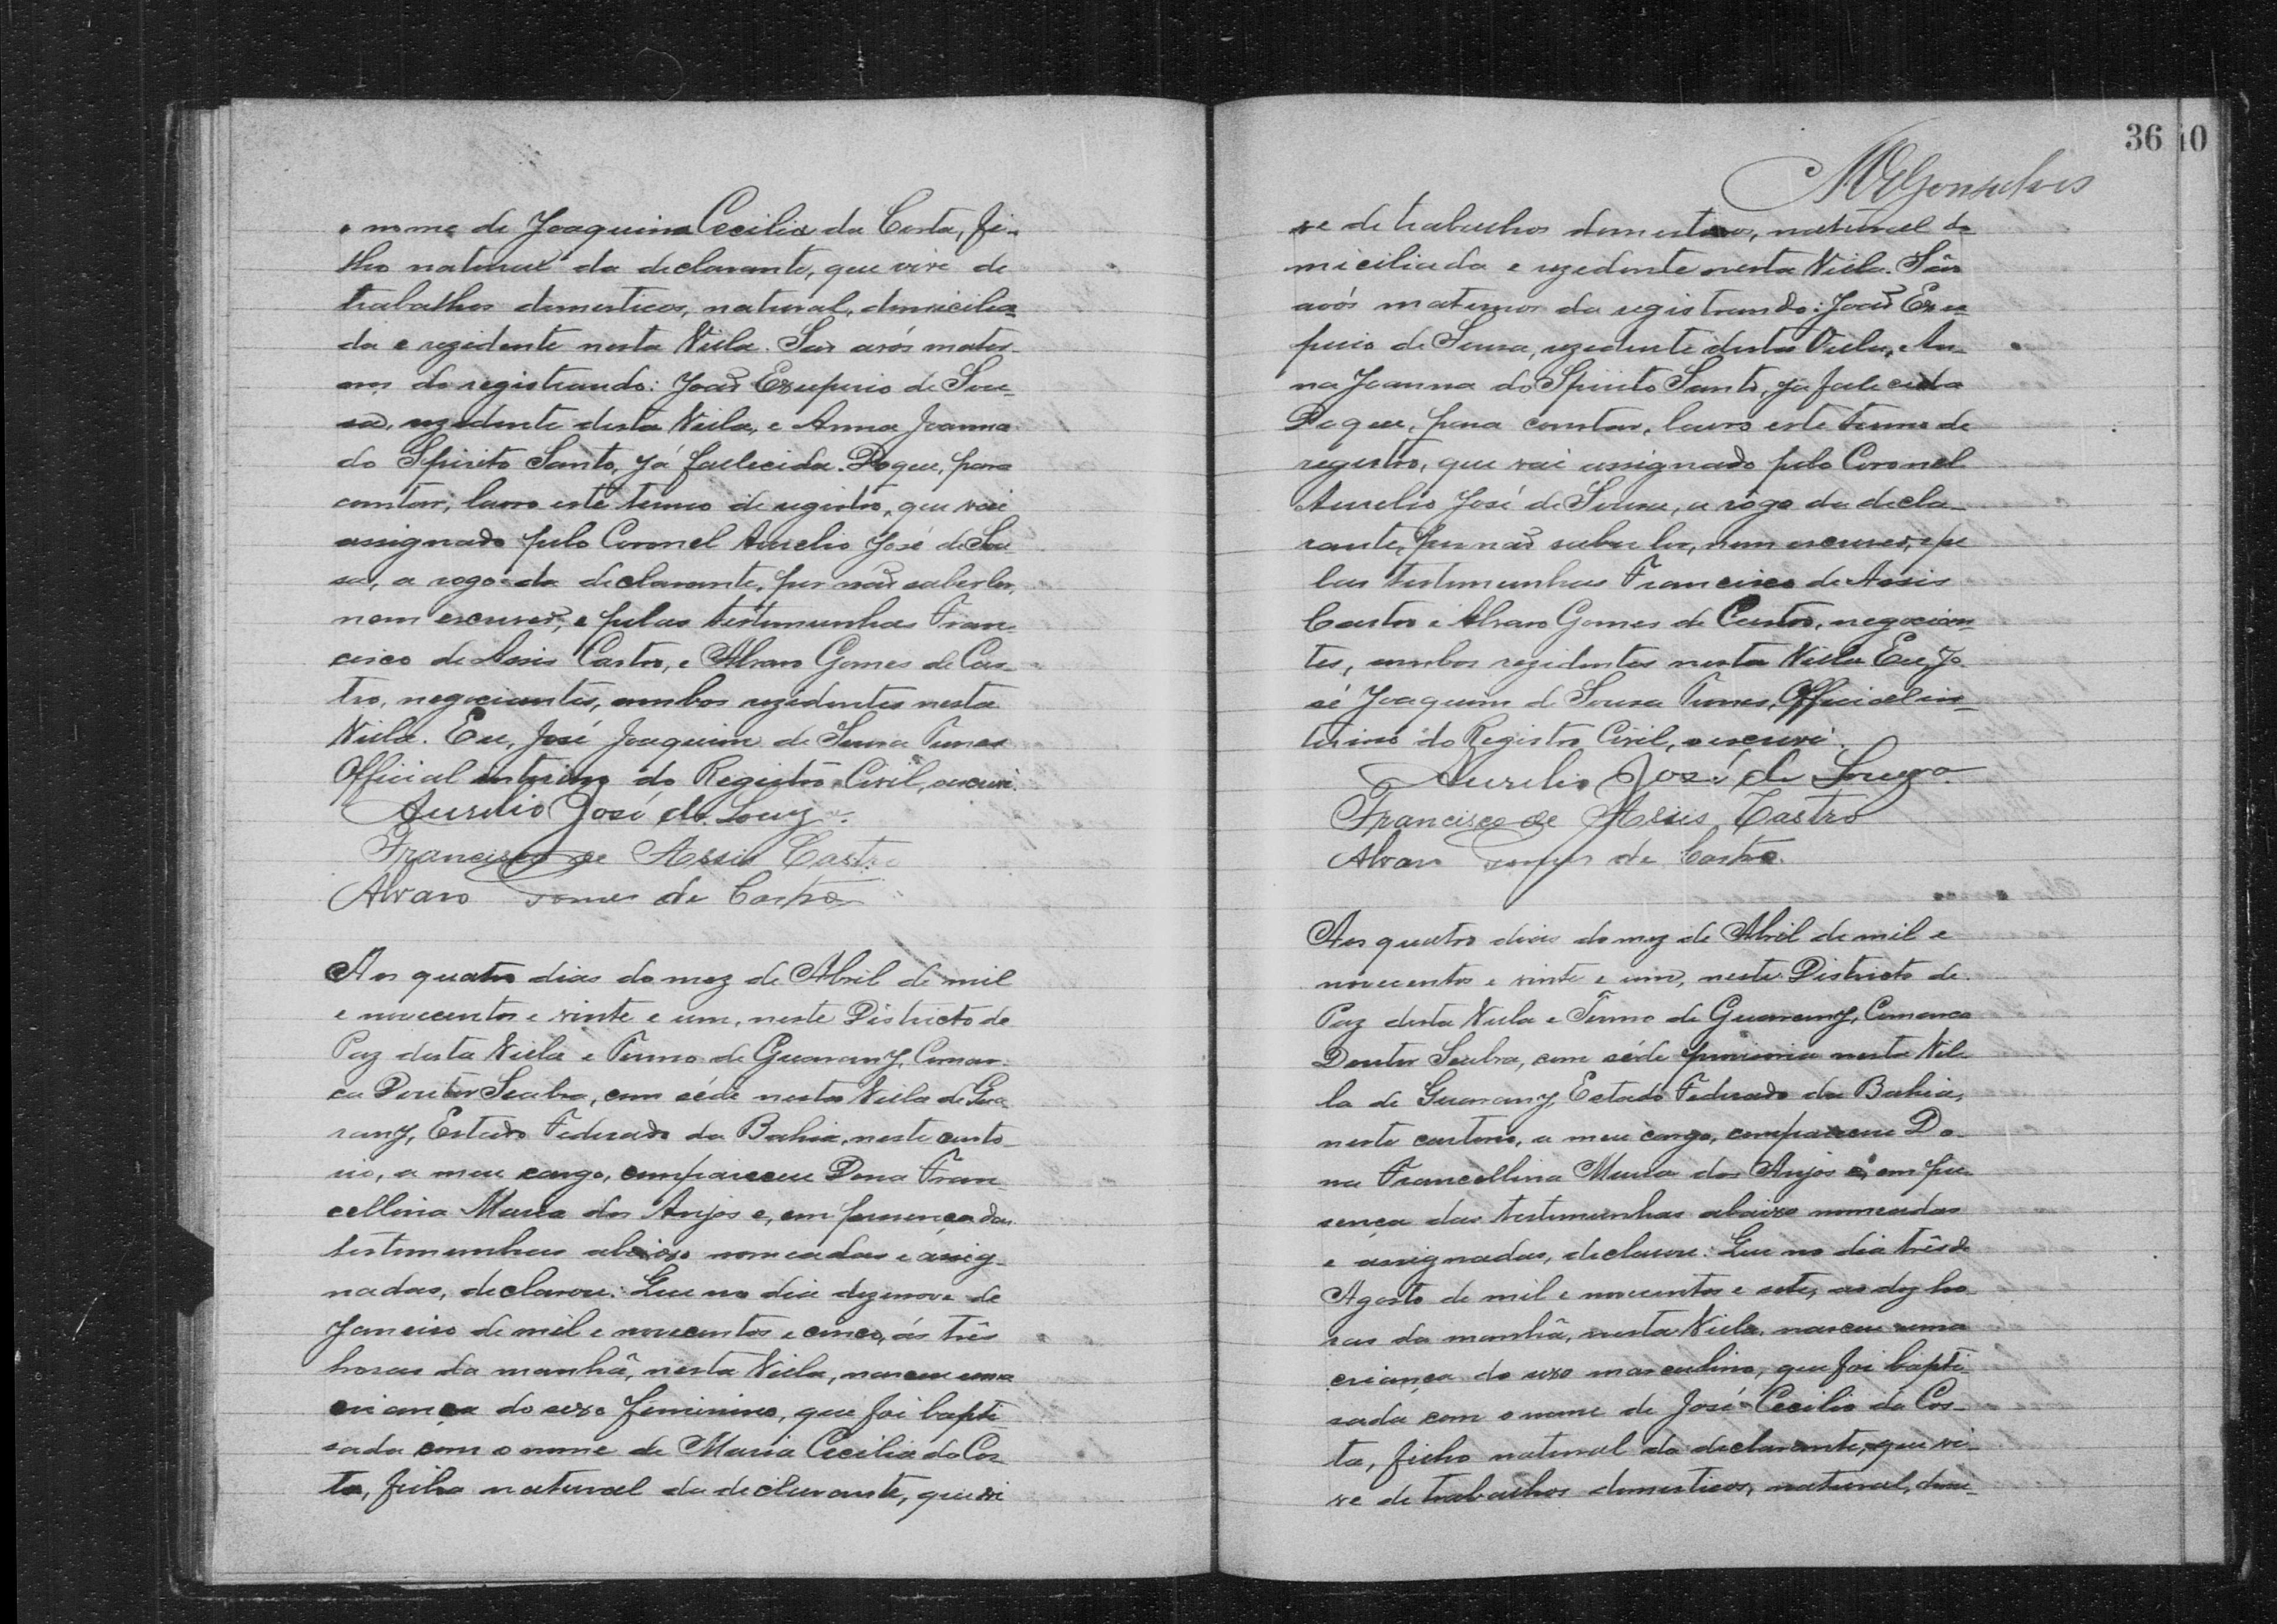 o nome de Joaquina Cecilia da Costa, fi-
lho natural da declarante, que vive de
trabalhos domesticos, natural, domicilia-
da e rezidente nesta Villa. São avós mater-
nos do registrando: João Exuperio de Sou-
sa, rezidente desta Villa, e Anna Joanna
do Spirito Santo, já fallecida. Do que, para
constar, lavro este termo de registro, que vai
assignado pelo Coronel Aurelio José de Sou
sa, a rogo da declarante, por não saber ler,
nem escrever, e pelas testemunhas Fran-
cisco de Assis Castro, e Alvaro Gomes de Cas-
tro, negociantes, ambos rezidentes nesta
Villa. Eu, José Joaquim de Sousa Tunes
Official interino do Registro Civil, escrevi.
Aurelio José de Souza.
Francisco de Assis Castro
Alvaro Gomes de Castro
Aos quatro dias do mez de Abril de mil
e novecentos e vinte e um, neste Districto de
Paz desta Villa e Termo de Guarany, Comar-
ca Doutor Seabra, com séde nesta Villa de Gua-
rany, Estado Federado da Bahia, neste carto-
rio, a meu cargo, compareceu Dona Fran-
cellina Maria dos Anjos e, em presença das
testemunhas abaixo nomeadas e assig-
nadas, declarou: Que no dia dezenove de
Janeiro de mil e novecentos e cinco, ás três
horas da manhã, nesta Villa, nasceu uma
criança do sexo feminino, que foi bapti
sada com o nome de Maria Cecilia da Cos-
ta, filha natural da declarante, que vi
36 40
MRGonsalves
ve de trabalhos domesticos, natural do
miciliada e rezidente nesta Villa. São
avós maternos da registrando: João Exu-
perio de Sousa, rezidente desta Villa, An-
na Joanna do Spirito Santo, já fallecida
Do que, para constar, lavro este termo de
registro, que vai assignado pelo Coronel
Aurelio José de Sousa, a rôgo da decla-
rante, por não saber ler, nem escrever, e pe
las testemunhas Francisco de Assis
Castro e Alvaro Gomes de Castro, negocian-
tes, ambos rezidentes nesta Villa Eu, Jo-
sé Joaquim de Sousa Tunes, Official in-
terino do Registro Civil, o escrevi.
Aurelio José de Souza
Francisco de Assis Castro
Alvaro Gomes de Castro.
Aos quatro dias do mez de Abril de mil e
novecentos e vinte e um, neste Districto de
Paz desta Villa e Termo de Guarany, Comarca
Doutor Seabra, com séde nesta Vil-
la de Guarany, Estado Federado da Bahia,
neste cartorio, a meu cargo, compareceu Do-
na Francellina Maria dos Anjos e, em pre-
sença das testemunhas abaixo nomeadas
e assignadas, declarou: Que no dia três de
Agosto de mil e novecentos e sete, as dez ho-
ras da manhã, nesta Villa, nasceu uma
criança do sexo masculino, que foi bapti-
sada com o nome de José Cecilio da Cos-
ta, filho natural da declarante, que vi-
ve de trabalhos domesticos, natural, domi-